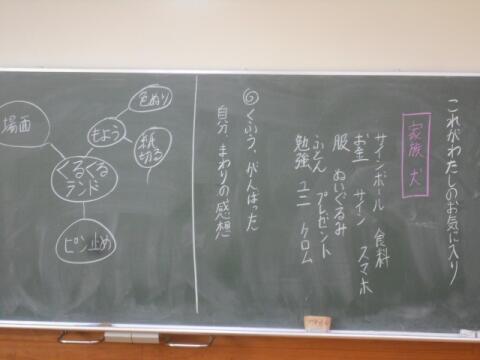 これがわたしのお気に入り
家族 犬
サインボール 食料
お金 サイン スマホ
服 ぬいぐるみ
ふとん プレゼント
勉強 ユニ クロム
◎くふう、がんばった
自分、まわりの感想
色ぬり
もよう
紙切る
場面
くるくる
ランド
ピン止め